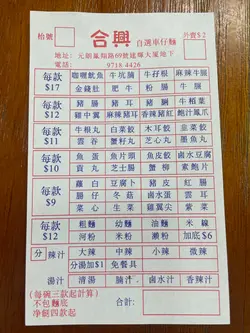 枱號
合興 自選車仔麵
外賣$2
地址：元朗鳳翔路69號建輝大廈地下
電話：9718 4426
每款 $17
咖喱魷魚 牛坑腩 牛孖根 麻辣牛腩
金錢肚 肥牛 粉腸 牛肚
每款 $12
豬腸 豬耳 豬潤 牛栢葉
雞中翼 麻辣豬耳 香辣豬紅 鮑汁鳳爪
每款 $11
牛根丸 白菜餃 韮菜餃 牛丸
雲吞 蟹籽丸 芝心丸 墨魚丸
每款 $10
魚蛋 魚片頭 魚皮餃 鹵水豆腐
貢丸 芝士腸 蟹柳 素鮑片
每款 $9
蘿白 豆腐卜 豬皮 紅腸
腸仔 冬菇 鹵水蛋 雲耳
菜心 生菜 雞翼尖 紫菜
每款 $12
粗麵 幼麵 油麵 米線
河粉 米粉 瀨粉 加底$6
分 辣汁 大辣 中辣 小辣 微辣
分湯加$1 免餐具
湯汁 清湯 腩汁 鹵水汁 香辣汁
(每碗三款起計算)
不包麵底
淨餸四款起
合計：